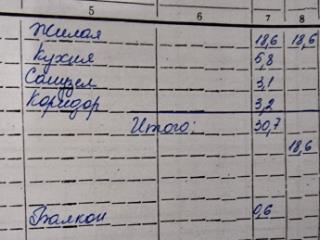 5 6 7 8
Жилая 18,6 18,6
Кухня 5,8
Санузел 3,1
Коридор 3,2
Итого: 30,7
18,6
Балкон 0,6